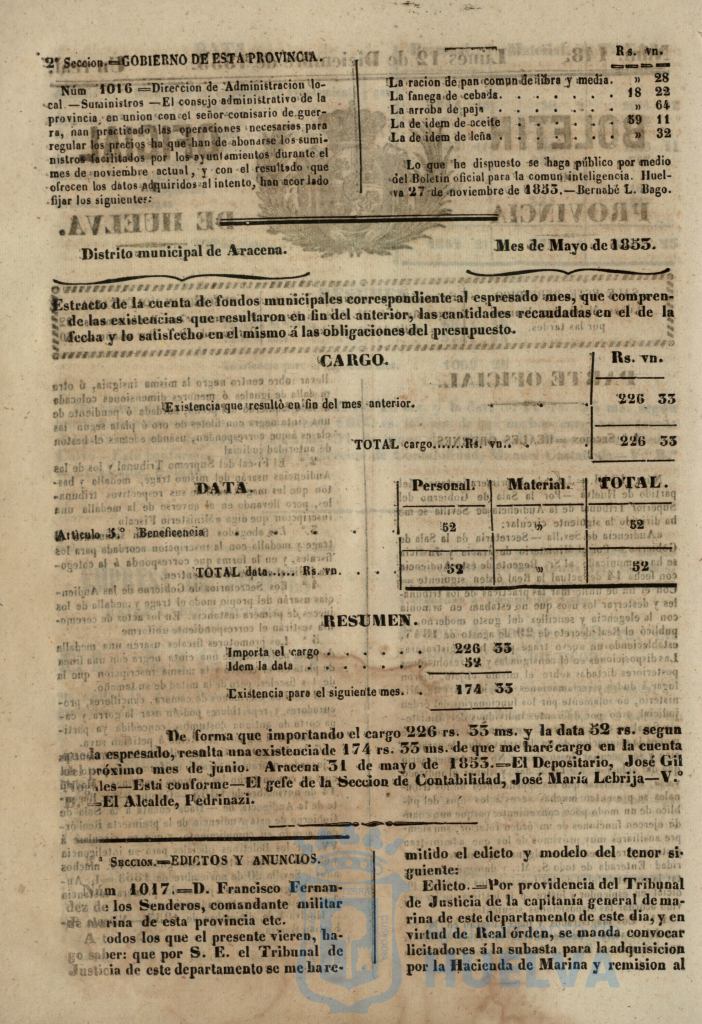 2ª Seccion.—GOBIERNO DE ESTA PROVINCIA.
Núm 1016 —Direccion de Administracion lo-
cal —Suministros —El consejo administrativo de la
provincia, en union con el señor comisario de guer-
ra, han practicado las operaciones necesarias para
regular los precios ha que han de abonarse los sumi-
nistros facilitados por los ayuntamientos durante el
mes de noviembre actual, y con el resultado que
ofrecen los datos adquiridos al intento, han acordado
fijar los siguientes:
Rs. vn.
La racion de pan comun de libra y media. » 28
La fanega de cebada. . . . . . . 18 22
La arroba de paja . . . . . . . » 64
La de idem de aceite . . . . . . 59 11
La de idem de leña . . . . . . . » 32
Lo que he dispuesto se haga público por medio
del Boletin oficial para la comun inteligencia. Huel-
va 27 de noviembre de 1853.—Bernabé L. Bago.
Distrito municipal de Aracena.
Mes de Mayo de 1853.
Estracto de la cuenta de fondos municipales correspondiente al espresado mes, que compren-
de las existencias que resultaron en fin del anterior, las cantidades recaudadas en el de la
fecha y lo satisfecho en el mismo á las obligaciones del presupuesto.
CARGO.
Rs. vn.
Existencia que resultó en fin del mes anterior. . . . 226 33
TOTAL cargo.......Rs. vn. . . 226 33
DATA.
Personal. Material. TOTAL.
Articulo 5.º Beneficencia . . . . . 52 » 52
TOTAL data...... Rs vn. . . 52 » 52
RESUMEN.
Importa el cargo . . . . . 226 33
Idem la data . . . . . . . 52
Existencia para el siguiente mes. . 174 33
De forma que importando el cargo 226 rs. 33 ms. y la data 52 rs. segun
la espresado, resulta una existencia de 174 rs. 33 ms. de que me haré cargo en la cuenta
próximo mes de junio. Aracena 31 de mayo de 1853.—El Depositario, José Gil
—Está conforme—El gefe de la Seccion de Contabilidad, José María Lebrija—V.º
B.º—El Alcalde, Pedrinazi.
ª SECCION.—EDICTOS Y ANUNCIOS.
Núm 1017.—D. Francisco Fernan-
dez de los Senderos, comandante militar
de marina de esta provincia etc.
A todos los que el presente vieren, ha-
go saber: que por S. E. el Tribunal de
Justicia de este departamento se me ha re-
mitido el edicto y modelo del tenor si-
guiente:
Edicto.—Por providencia del Tribunal
de Justicia de la capitanía general de ma-
rina de este departamento de este dia, y en
virtud de Real órden, se manda convocar
licitadores á la subasta para la adquisicion
por la Hacienda de Marina y remision al
HUELVA